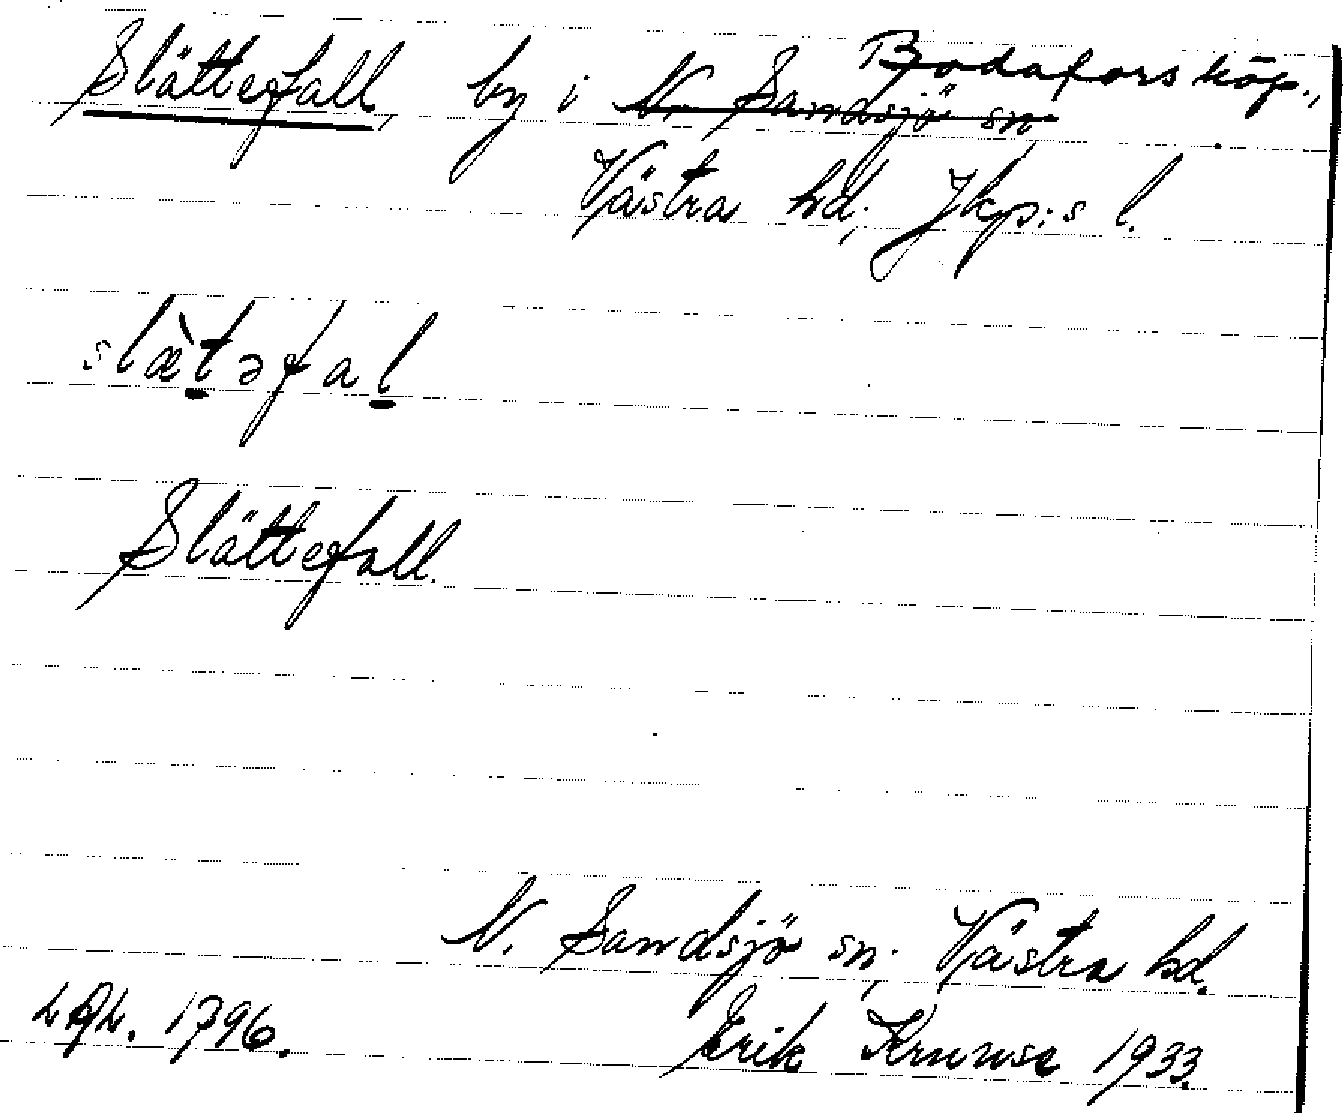 Slättefall, by i N. Sandsjö sn Bodafors köp.,
Västra hd, Jkp:s l.
slæ̀təfal
Slättefall.
N. Sandsjö sn, Västra hd.
1796. Erik Kruuse 1933.